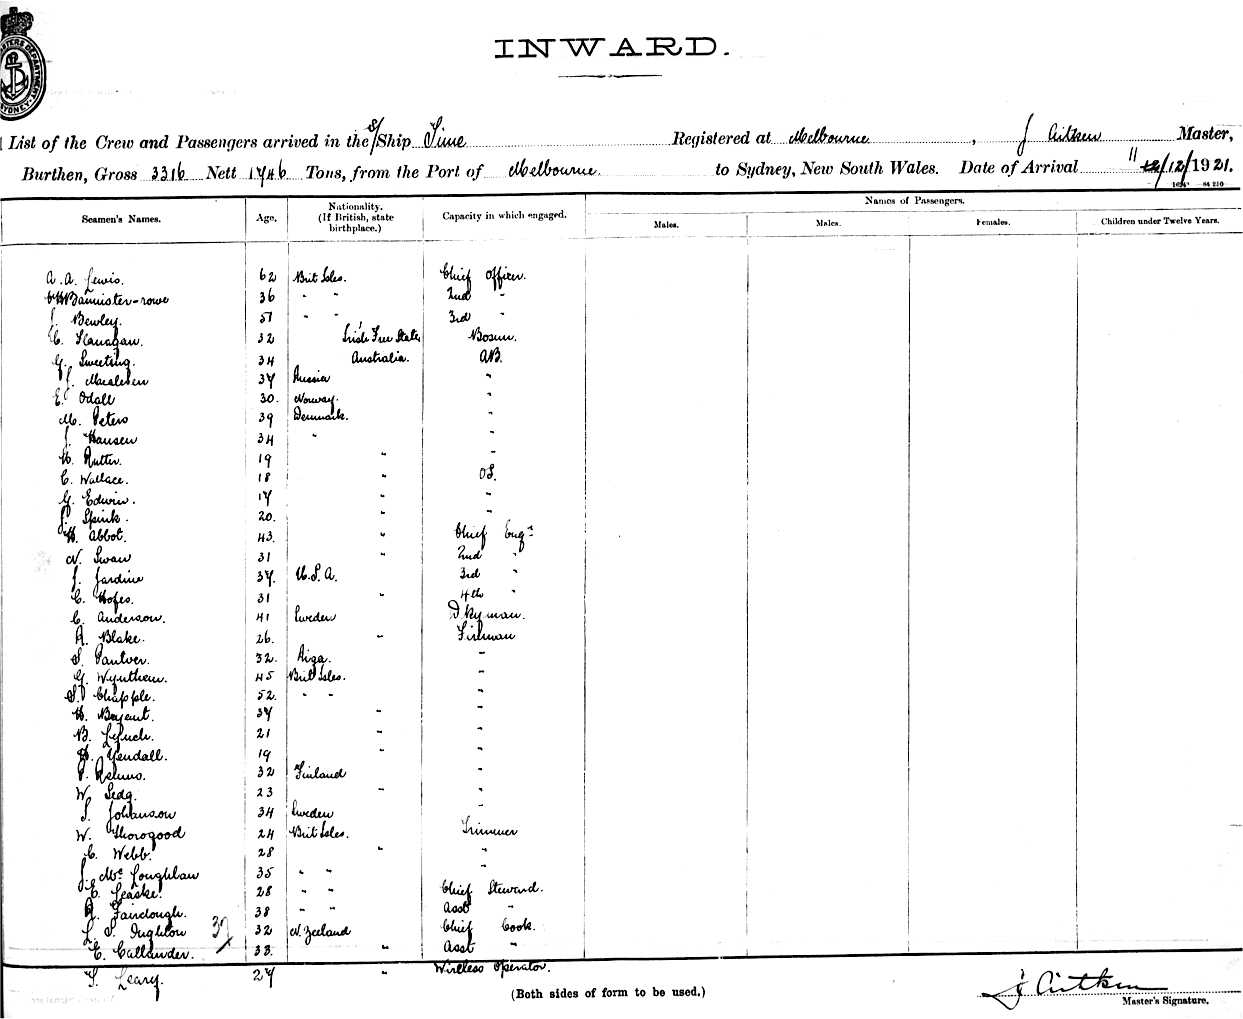 INWARD.
List of the Crew and Passengers arrived in the S/Ship Time Registered at Melbourne, J Aitken Master,
Burthen, Gross 3316 Nett 1746 Tons, from the Port of Melbourne. to Sydney, New South Wales. Date of Arrival 11/12/1921.
Names of Passengers.
Seamen's Names. Age. Nationality. (If British, state birthplace.) Capacity in which engaged. Males. Males. Females. Children under Twelve Years.
A. A. Lewis. 62 Brit Isles. Chief Officer.
Bannister-rowe 36 " " 2nd "
J. Bewley. 51 " " 3rd "
C. Flanagan. 32 Irish Free State Bosun.
G. Sweeting. 34 Australia. AB.
J. 37 Russia "
E. Odall 30. Norway. "
M. Peters 39 Denmark. "
J. Hansen 34 " "
H. Rutter. 19 " "
C. Wallace. 18 " OS.
G. Edwin. 17 " "
J. Spink. 20. " "
H. Abbot. 43. " Chief Engr
N. Swan 31 " 2nd "
J. Jardine 37. U.S.A. 3rd "
C. 31 4th "
C. Anderson. 41 Sweden Dkyman.
A. Blake. 26. " Fireman
S. 32. Riga. "
G. 45 Brit Isles. "
S. Chapple. 52. " " "
H. Bryant. 37 " "
B. Lynch. 21 " "
H. Yendall. 19 " "
32 Finland "
W. 23 " "
S. Johanson 34 Sweden "
W. Thorogood 24 Brit Isles. Trimmer
C. Webb. 28 " "
J. McLoughlan 35 " " "
C. Leaske. 28 " " Chief Steward.
R. Fairclough. 38 " " Asst "
L. S. 32 N. Zeeland Chief Cook.
E. Callander. 33. " Asst "
T. Leary. 27 " Wireless Operator.
(Both sides of form to be used.)
J Aitken
Master's Signature.